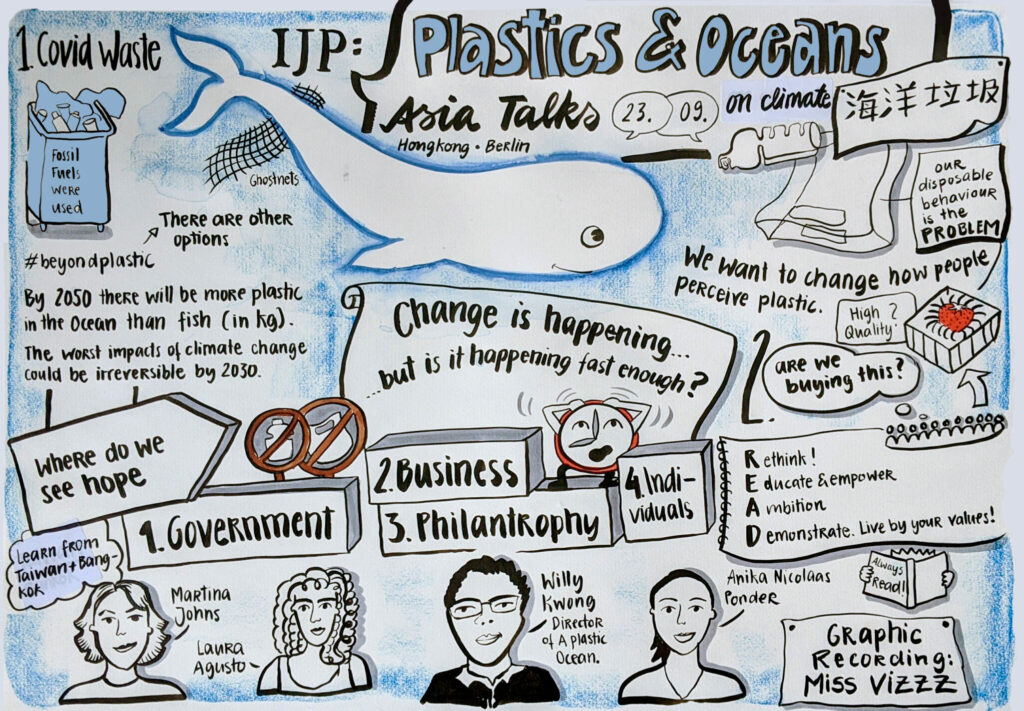 IJP: Plastics & Oceans
Asia Talks
23. 09.
on climate
Hongkong • Berlin
海洋垃圾
1. Covid Waste
Fossil
Fuels
were
used
Ghostnets
There are other
options
#beyondplastic
By 2050 there will be more plastic
in the Ocean than fish (in kg).
The worst impacts of climate change
could be irreversible by 2030.
our
disposable
behaviour
is the
PROBLEM
We want to change how people
perceive plastic.
High
Quality?
2.
are we
buying this?
Change is happening...
...but is it happening fast enough?
Where do we
see hope
1. Government
2. Business
3. Philantrophy
4. Indi-
viduals
Rethink!
Educate & empower
Ambition
Demonstrate. Live by your values!
Always
Read!
Learn from
Taiwan + Bang-
kok
Martina
Johns
Laura
Agusto
Willy
Kwong
Director
of A plastic
Ocean.
Anika Nicolaas
Ponder
Graphic
Recording:
Miss Vizzz